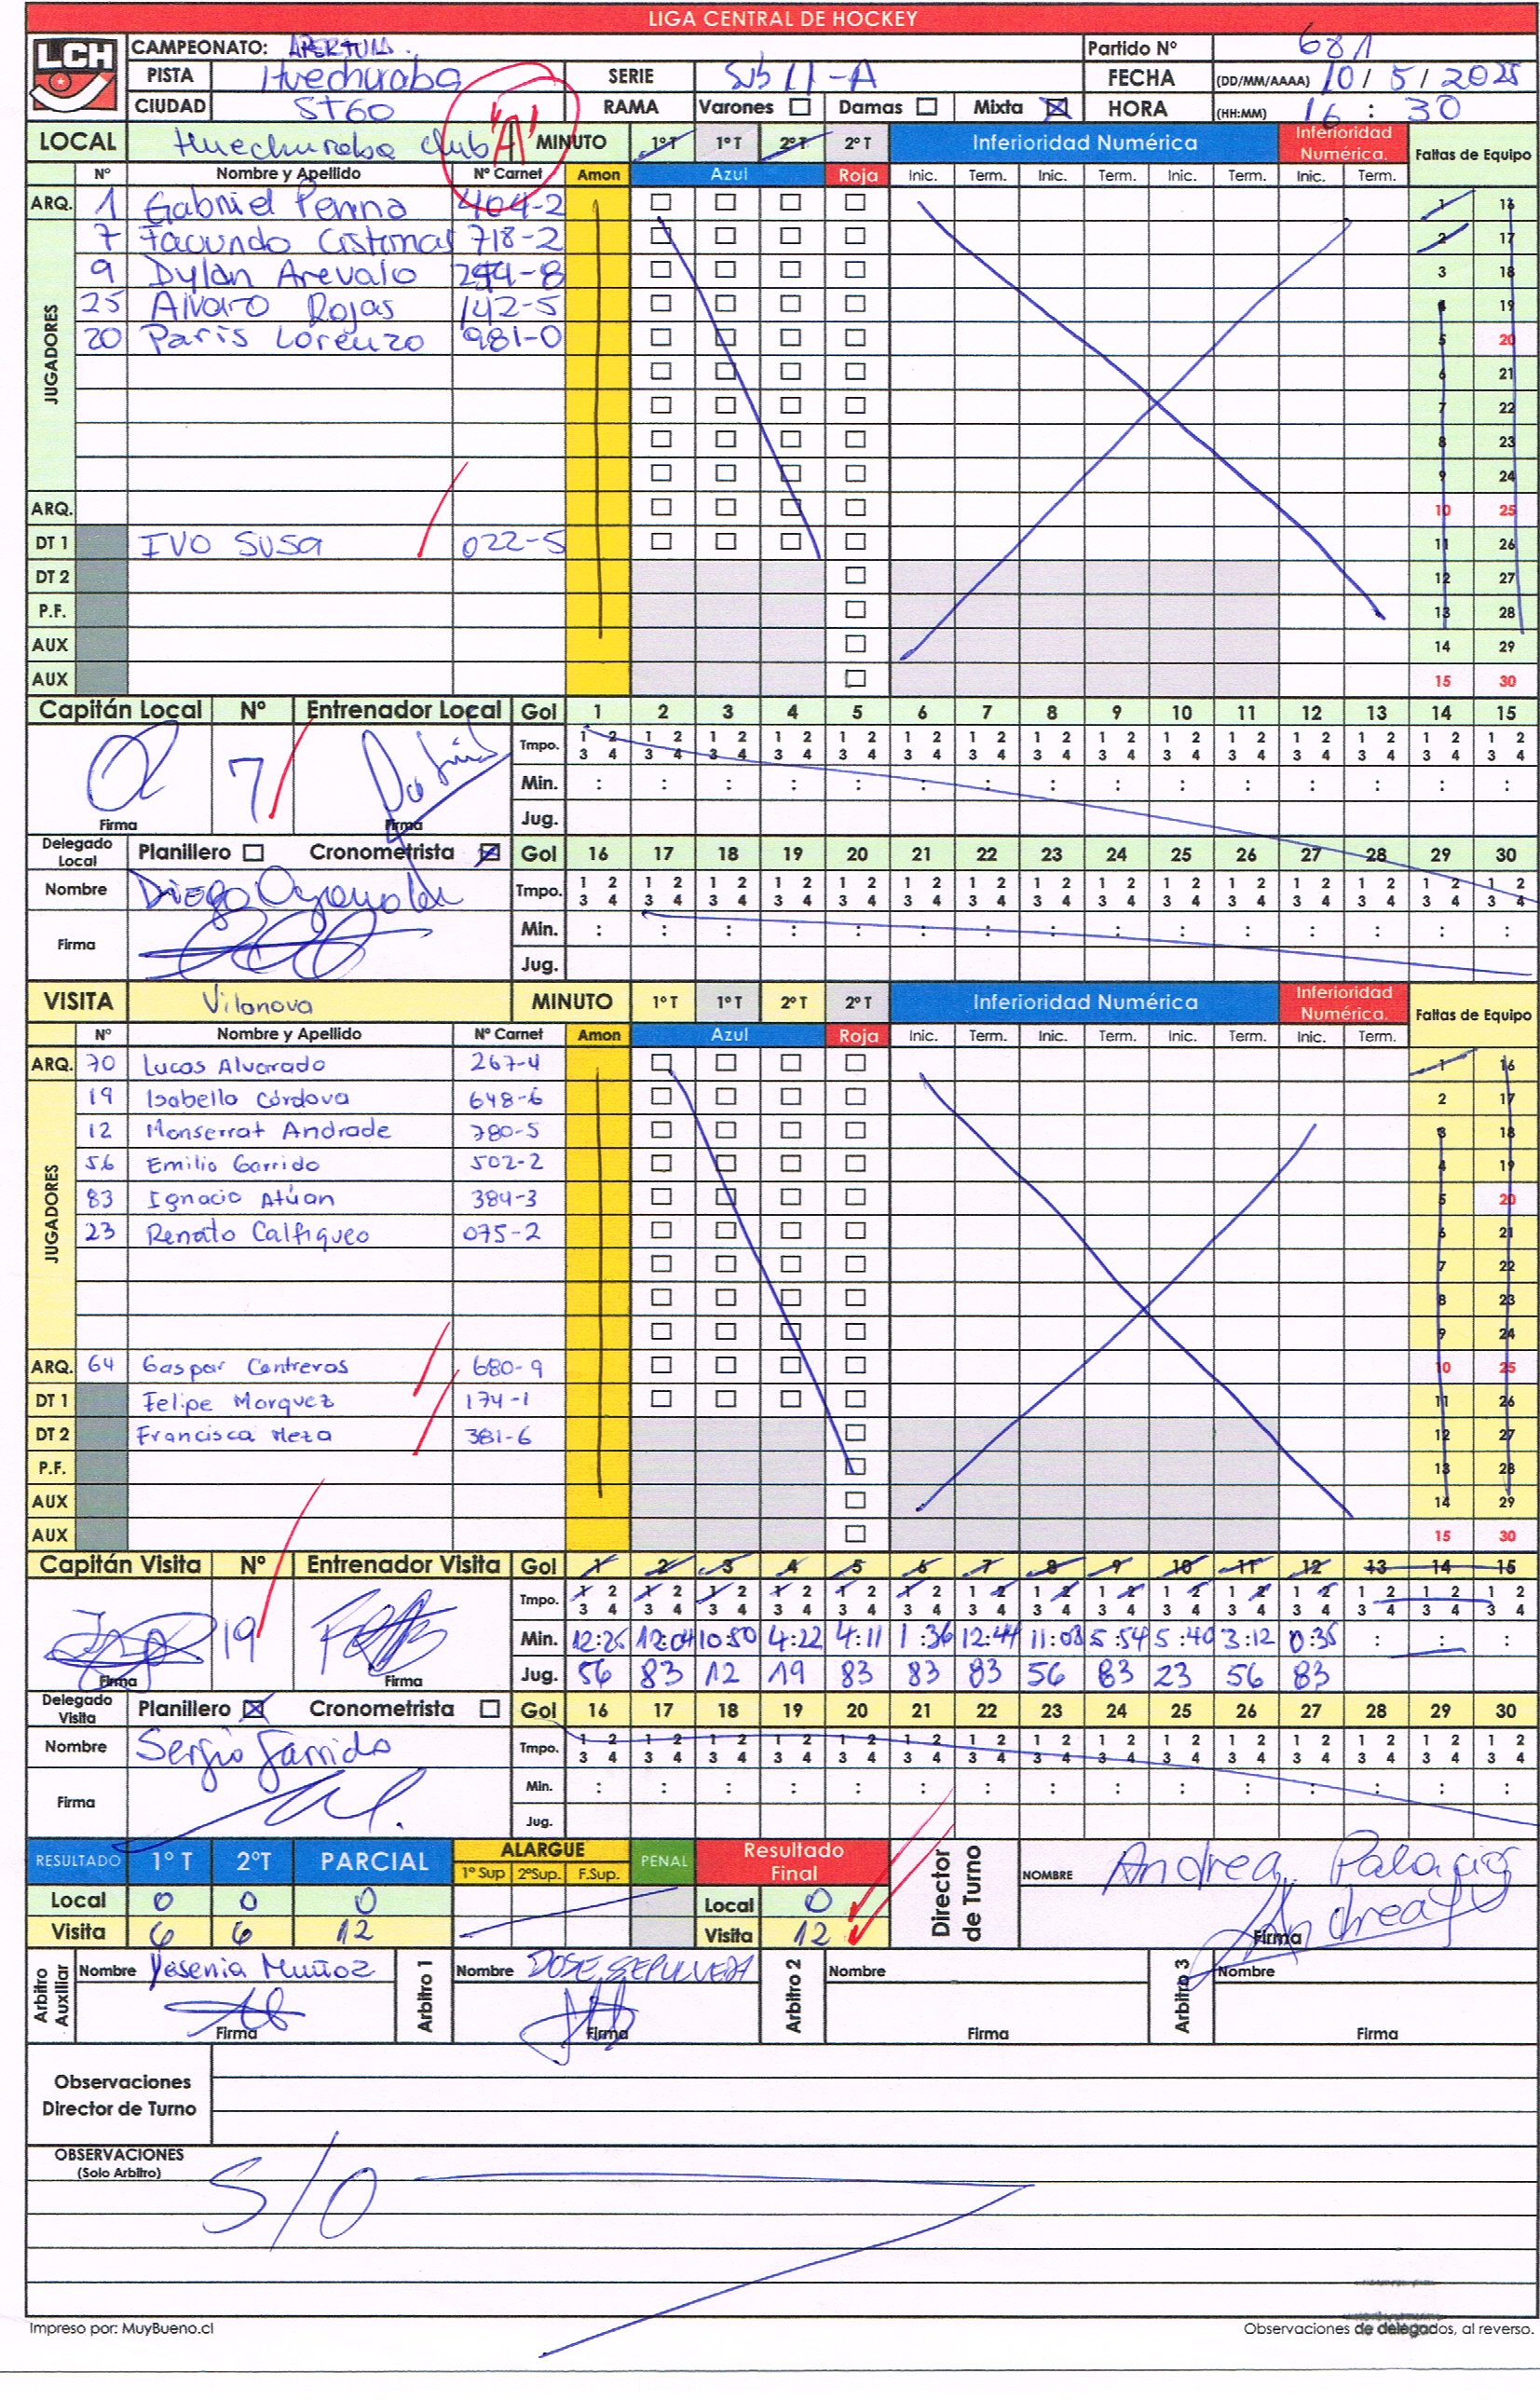 LIGA CENTRAL DE HOCKEY
LCH
CAMPEONATO: APERTURA. Partido Nº 681
PISTA Huechuraba SERIE Sub 11-A FECHA (DD/MM/AAAA) 10 / 5 / 2025
CIUDAD STGO RAMA Varones Damas Mixta HORA (HH:MM) 16 : 30
LOCAL Huechuraba club "A" MINUTO 1º T 1º T 2º T 2º T Inferioridad Numérica Inferioridad Numérica. Faltas de Equipo
Nº Nombre y Apellido Nº Carnet Amon Azul Roja Inic. Term. Inic. Term. Inic. Term. Inic. Term.
ARQ. 1 Gabriel Penna 404-2 1 16
7 Facundo 718-2 2 17
9 Dylan Arevalo 3 18
25 Alvaro Rojas 142-5 4 19
20 Paris Lorenzo 981-0 5 20
JUGADORES
6 21
7 22
8 23
9 24
ARQ. 10 25
DT 1 IVO SUSA 022-5 11 26
DT 2 12 27
P.F. 13 28
AUX 14 29
AUX 15 30
Capitán Local Nº Entrenador Local Gol 1 2 3 4 5 6 7 8 9 10 11 12 13 14 15
7 Tmpo. 1 2 3 4 1 2 3 4 1 2 3 4 1 2 3 4 1 2 3 4 1 2 3 4 1 2 3 4 1 2 3 4 1 2 3 4 1 2 3 4 1 2 3 4 1 2 3 4 1 2 3 4 1 2 3 4 1 2 3 4
Min. : : : : : : : : : : : : : : :
Firma Firma Jug.
Delegado Local Planillero Cronometrista Gol 16 17 18 19 20 21 22 23 24 25 26 27 28 29 30
Nombre Diego Tmpo. 1 2 3 4 1 2 3 4 1 2 3 4 1 2 3 4 1 2 3 4 1 2 3 4 1 2 3 4 1 2 3 4 1 2 3 4 1 2 3 4 1 2 3 4 1 2 3 4 1 2 3 4 1 2 3 4 1 2 3 4
Firma Min. : : : : : : : : : : : : : : :
Jug.
VISITA Vilanova MINUTO 1º T 1º T 2º T 2º T Inferioridad Numérica Inferioridad Numérica. Faltas de Equipo
Nº Nombre y Apellido Nº Carnet Amon Azul Roja Inic. Term. Inic. Term. Inic. Term. Inic. Term.
ARQ. 70 Lucas Alvarado 267-4 1 16
19 Isabella Córdova 648-6 2 17
12 Monserrat Andrade 780-5 3 18
56 Emilio Garrido 502-2 4 19
83 Ignacio Atúan 384-3 5 20
23 Renato Calfiqueo 075-2 6 21
JUGADORES
7 22
8 23
9 24
ARQ. 64 Gaspar Contreras 680-9 10 25
DT 1 Felipe Marquez 174-1 11 26
DT 2 Francisca Meza 381-6 12 27
P.F. 13 28
AUX 14 29
AUX 15 30
Capitán Visita Nº Entrenador Visita Gol 1 2 3 4 5 6 7 8 9 10 11 12 13 14 15
19 Tmpo. 1 2 3 4 1 2 3 4 1 2 3 4 1 2 3 4 1 2 3 4 1 2 3 4 1 2 3 4 1 2 3 4 1 2 3 4 1 2 3 4 1 2 3 4 1 2 3 4 1 2 3 4 1 2 3 4 1 2 3 4
Min. 12:25 12:04 10:50 4:22 4:11 1:36 12:44 11:03 5:54 5:40 3:12 0:35 : : :
Firma Firma Jug. 56 83 12 19 83 83 83 56 83 23 56 83
Delegado Visita Planillero Cronometrista Gol 16 17 18 19 20 21 22 23 24 25 26 27 28 29 30
Nombre Sergio Garrido Tmpo. 1 2 3 4 1 2 3 4 1 2 3 4 1 2 3 4 1 2 3 4 1 2 3 4 1 2 3 4 1 2 3 4 1 2 3 4 1 2 3 4 1 2 3 4 1 2 3 4 1 2 3 4 1 2 3 4 1 2 3 4
Firma Min. : : : : : : : : : : : : : : :
Jug.
RESULTADO 1º T 2ºT PARCIAL ALARGUE 1º Sup 2ºSup. F.Sup. PENAL Resultado Final Director de Turno NOMBRE Andrea Palacios
Local 0 0 0 Local 0
Visita 6 6 12 Visita 12 Firma
Arbitro Auxiliar Nombre Yesenia Muñoz Arbitro 1 Nombre JOSE SEPULVEDA Arbitro 2 Nombre Arbitro 3 Nombre
Firma Firma Firma Firma
Observaciones
Director de Turno
OBSERVACIONES
(Solo Arbitro)
S/O
Impreso por: MuyBueno.cl Observaciones de delegados, al reverso.